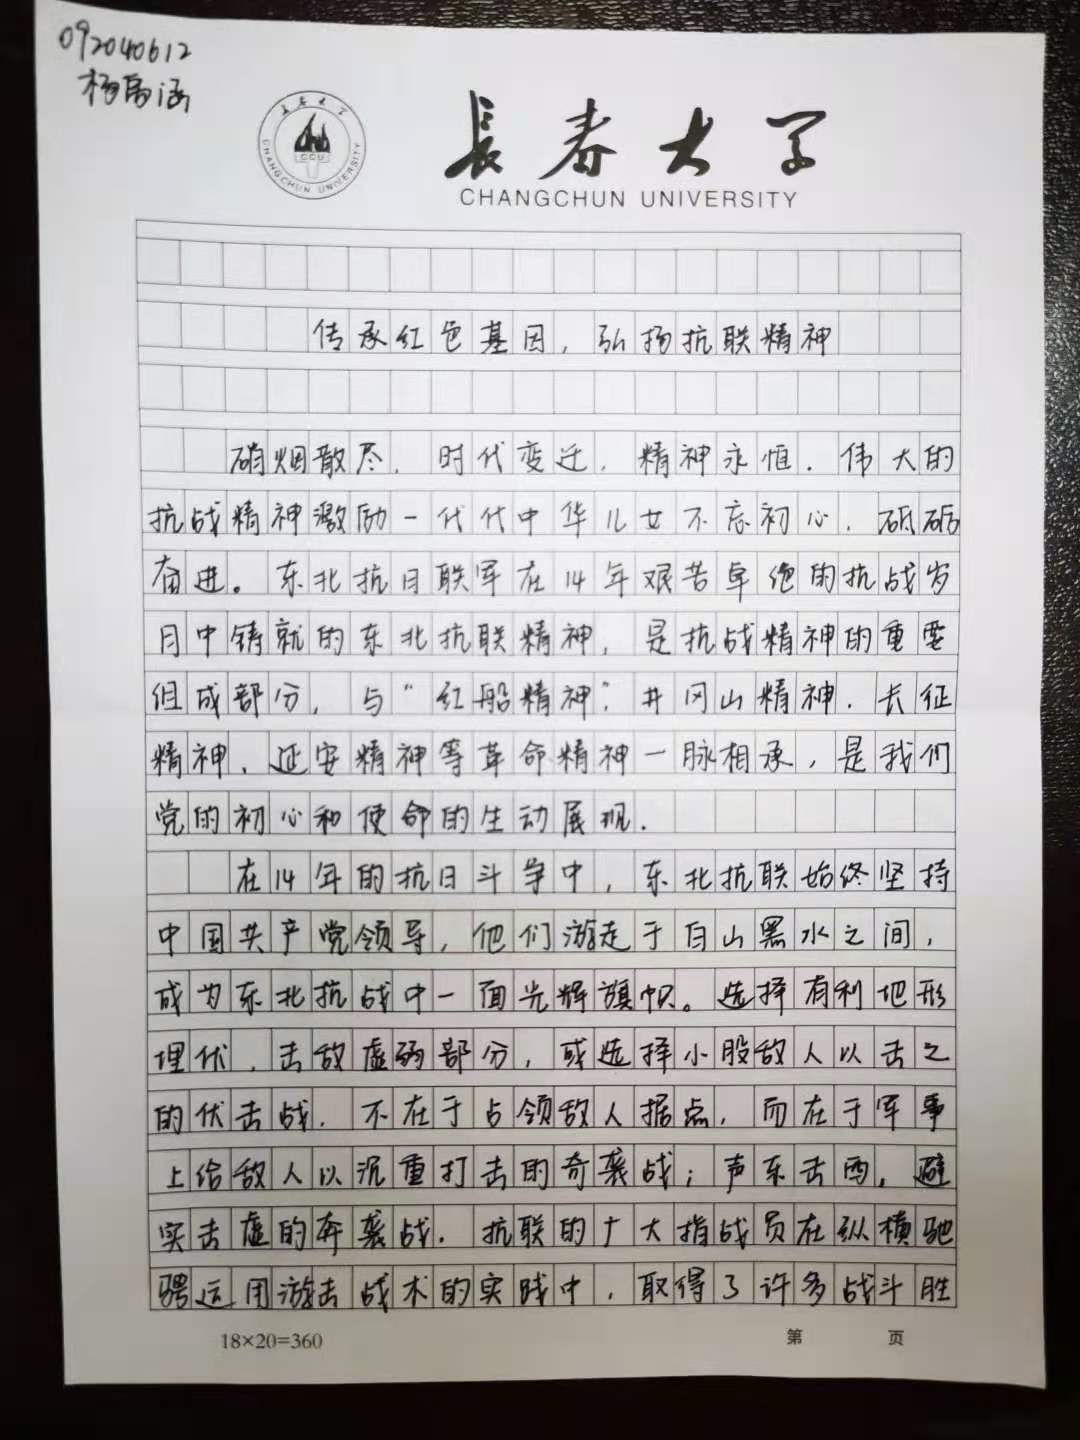 092040612
杨禹涵
長春大学
CHANGCHUN UNIVERSITY
長春大学
CCU
CHANGCHUN UNIVERSITY
传承红色基因，弘扬抗联精神
硝烟散尽，时代变迁，精神永恒．伟大的
抗战精神激励一代代中华儿女不忘初心．砥砺
奋进。东北抗日联军在14年艰苦卓绝的抗战岁
月中铸就的东北抗联精神，是抗战精神的重要
组成部分，与“红船精神”井冈山精神．长征
精神、延安精神等革命精神一脉相承，是我们
党的初心和使命的生动展现．
在14年的抗日斗争中，东北抗联始终坚持
中国共产党领导，他们游走于白山黑水之间，
成为东北抗战中一面光辉旗帜。选择有利地形
埋伏，击敌虚弱部分，或选择小股敌人以击之
的伏击战．不在于占领敌人据点，而在于军事
上给敌人以沉重打击的奇袭战；声东击西，避
实击虚的奔袭战．抗联的广大指战员在纵横驰
骋运用游击战术的实践中，取得了许多战斗胜
18×20=360
第 页